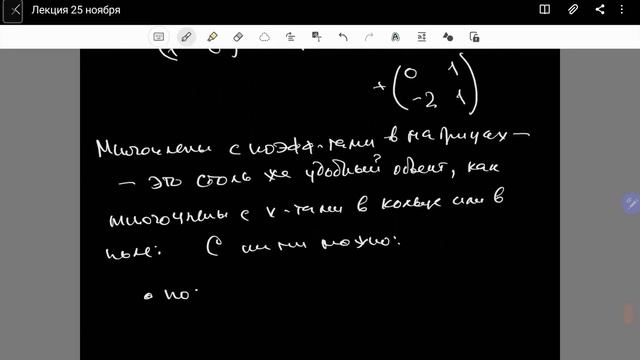 Лекция 25 ноября
+ ( 0 1
-2 1 )
Многочлены с коэфф-тами в матрицах —
— это столь же удобный объект, как
многочлены с к-тами в кольце или в
поле: С ними можно:
• по